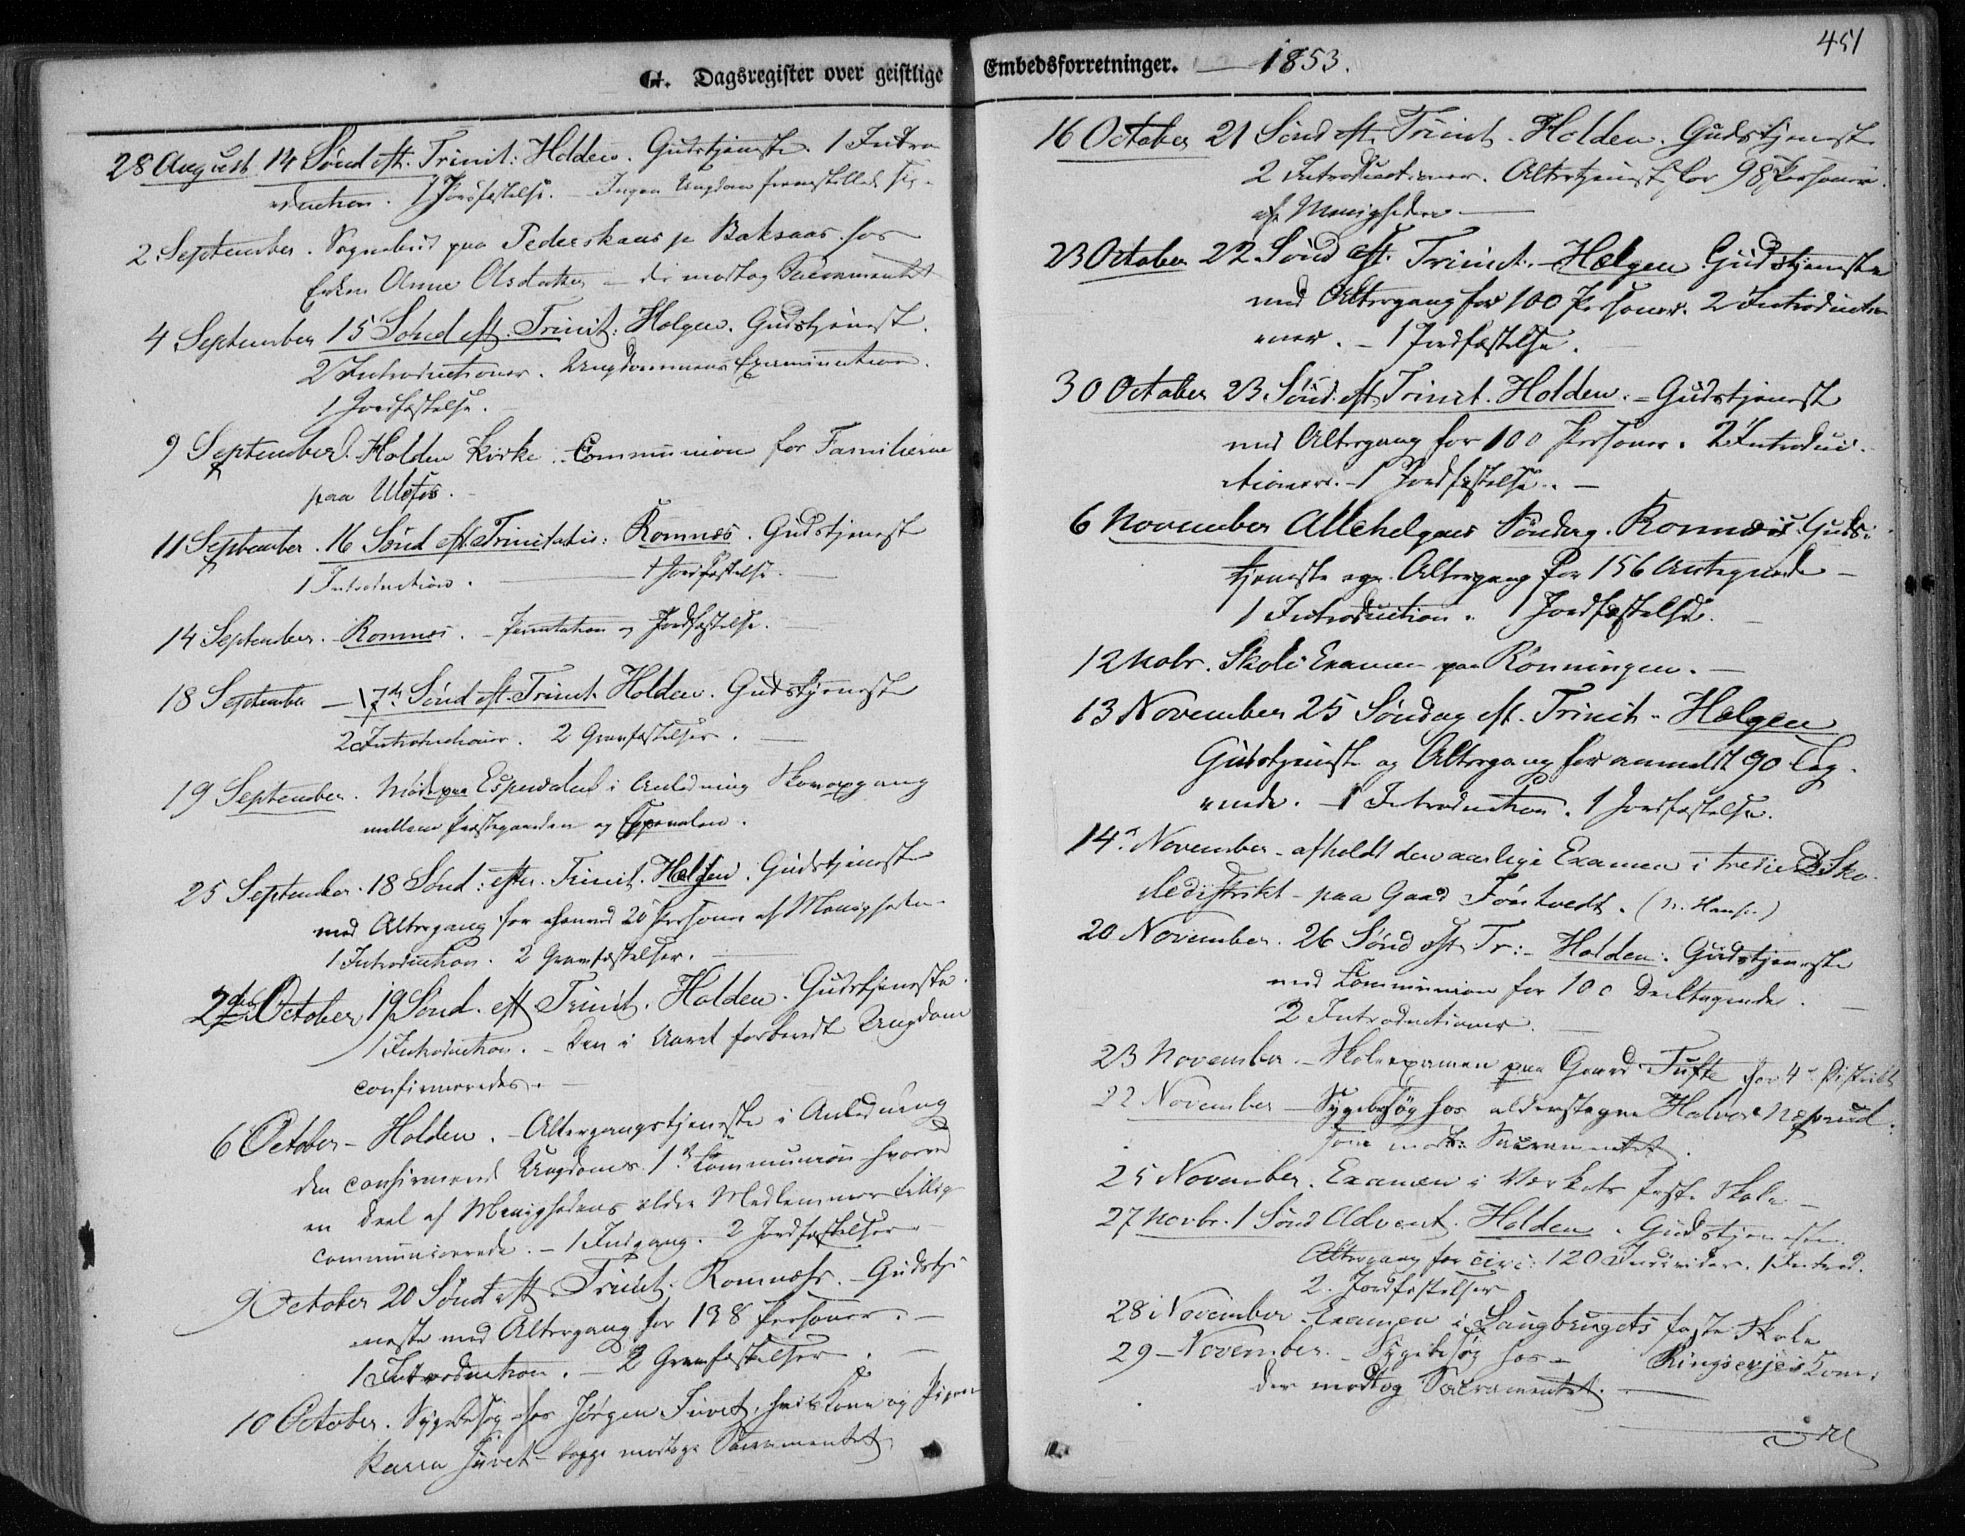 G. Dagsregister over geistlige
28 August 14 Sönd eft. Trinit: Holden. Gudstjeneste. 1 Intro
duction. 1 Jordfæstelse. – Ingen Ungdom fremstillede sig.
2 September. Sognebud paa Pederskaas p Baksaas hos
Enken Anne Olsdatter – der modtog Sacramentet
4 September 15 Sönd eft. Trinit: Helgen. Gudstjenest.
2 Introductioner. Ungdommens Examination.
1 Jordfæstelse.
9 September. Holden Kirke. Communion for Familierne
paa Ulefos.
11 September. 16 Sönd eft Trinitatis: Romnes. Gudstjenest
1 Introduction. – 1 Jordfæstelse.
14 September. Romnes. – og Jordfæstelse.
18 September – 17de Sönd eft. Trinit. Holden. Gudstjeneste
2 Introductioner. 2 Gravfæstelser.
19 September. Möde paa Espevalen i Anledning Skovopgang
mellem Præstegaarden og Espevalen.
25 September. 18 Sönd: efter. Trinit. Helgen. Gudstjeneste
med Altergang for 20 Personer af Menigheden.
1 Introduction. 2 Gravfæstelser.
2den October 19 Sönd. eft Trinit. Holden. Gudstjeneste.
1 Introduction. – Den i Aaret forberedte Ungdom
confirmeredes.
6 October – Holden. – Altergangstjeneste i Anledning
den confirmerede Ungdoms 1ste Communion hvorved
en Deel af Menighedens ældre Medlemmer tillige
communicerede. – 1 Indgang. 2 Jordfæstelser
9 October 20 Sönd eft. Trinit: Romnæs. – Gudstje
neste med Altergang for 138 Personer. –
1 Introduction. – 2 Gravfæstelser.
10 October. Sygebesög hos Jörgen Juvet, hvis Kone og Pigen
Karen Juvet – begge modtoge Sacramentet
Embedsforretninger. – 1853.
451
16 October 21 Sönd eft. Trinit. Holden. Gudstjeneste
2 Introductioner. Altertjeneste for 98 Personer
af Menigheden –
23 October 22 Sönd eft. Trinit. – Helgen Gudstjeneste
med Altergang for 100 Personer. 2 Introductio
ner. – 1 Jordfæstelse.
30 October 23 Sönd. eft Trinit. Holden. – Gudstjenest
med Altergang for 100 Personer. 2 Introduc
tioner. – 1 Jordfæstelse. –
6 November Allehelgens Söndag. Romnæs. Guds
tjeneste og Altergang for 156 Antegnede –
1 Introduction. 1 Jordfæstelse.
12 Nobr. Skole Examen paa Rönningen. –
13 November 25 Söndag eft. Trinit. – Helgen
Gudstjeneste og Altergang for anmeldt 90
. – 1 Introduction. 1 Jordfæstelse.
14. November – afholdt den aarlige Examen i tredie Sko
ledistrikt – paa Gaard Töntvedt. (N. Hansen)
20 November. 26 Sönd eft Tr: – Holden. Gudstjeneste
med Communion for 100 Deeltagende.
2 Introductioner.
23 November. – Skoleexamen paa Gaard Tufte for 4de Distrikt
22 November – Sygebesög hos alderstegne Halvor Næsrud.
som modt. Sacramentet.
25 November. Examen i Værkets faste Skole –
27 Novbr. 1 Sönd Advent. Holden. Gudstjeneste.
Altergang for circ: 120 Individer. 1 Introd.
2 Jordfæstelser
28 November. Examen i faste Skole
29 – November. – Sygebesög hos – Ringsevjes Kone,
der modtog Sacramentet. –